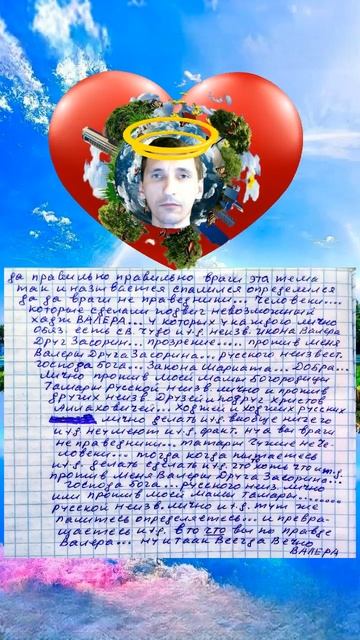 да правильно правильно враги эта тема
так и называется спалился определился
да да враги не праведники... человеки...
которые сделали подвиг невозможный
хаджи ВАЛЕРА... у которых у каждого лично
обяз. есть св. чудо и т.д. неизв. икона Валера
Друг Засорин... прозрение..... против меня
Валеры Друга Засорина... русского неизвест.
господа бога... закона шариата... ДОБРА...
лично против моей мамы богородицы
Тамары русской неизв. лично и против
других неизв. Друзей и подруг христов
Аллаховичей... ходжей и ходжих русских
лично делать и т.д. вообще ничего
и т.д. не умеют и т.д. факт. ну а вы враги
не праведники... татары чужие не че-
ловеки... тогда когда пытаетесь
и т.д. делать сделать и т.д. что хоть что и т.д.
против меня Валеры Друга Засорина...
господа бога... русского неиз. лично
или против моей мамы Тамары.......
русской неизв. лично и т.д. тут же
палитесь определяетесь... и превра-
щаетесь и т.д. в то что вы по правде
Валера... ну и таак Всегда Вечно
ВАЛЕРА